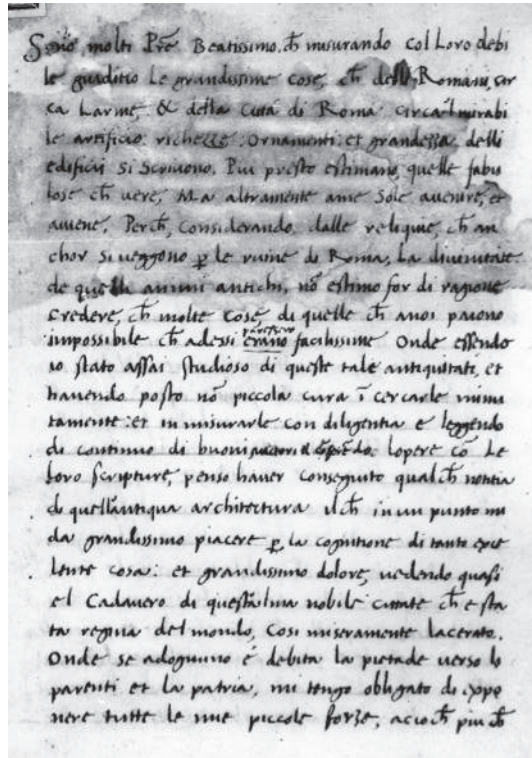 Sonō molti Prē Beatissimo. ch̄ misurando col Loro debi
le giuditio Le grandissime cose, ch̄ delli Romani, cir
ca Larme, & della Città di Roma circa'l mirabi
le artificio: richezze: Ornamenti: et grandezza delli
edificii si scrivono, Piu presto estimano, quelle fabu
lose ch̄ vere, Ma altramente ame sole avenire, et
aviene. Perch̄, considerando dalle reliquie, ch̄ an
chor si veggono p̱ le ruine di Roma, La divinitate
de quelli animi antichi, nō estimo for di ragione
credere, ch̄ molte cose, di quelle ch̄ anoi paiono
impossibile ch̄ adessi erano paressino facilissime Onde essendo
io stato assai studioso di queste tale antiquitati, et
havendo posto nō piccola cura ī cercarle minu
tamente: et in misurarle con diligentia e leggendo
di continuo di buoni auctori lopere cō Le
Loro scripture, penso haver conseguito qualch̄ notitia
di quell'antiqua architectura ilch̄ in un punto mi
da grandissimo piacere p̱ la cognitione di tanto exce
lente cosa: et grandissimo dolore, vedendo quasi
el Cadavero di quest'alma nobile cittate ch̄ e sta
ta regina del mondo, Cosi miseramente lacerato.
Onde se adognuno é debita la pietade verso lo
parenti et la patria, mi tengo obligato di expo
nere tutte le mie piccole forze, acioch̄ piu ch̄